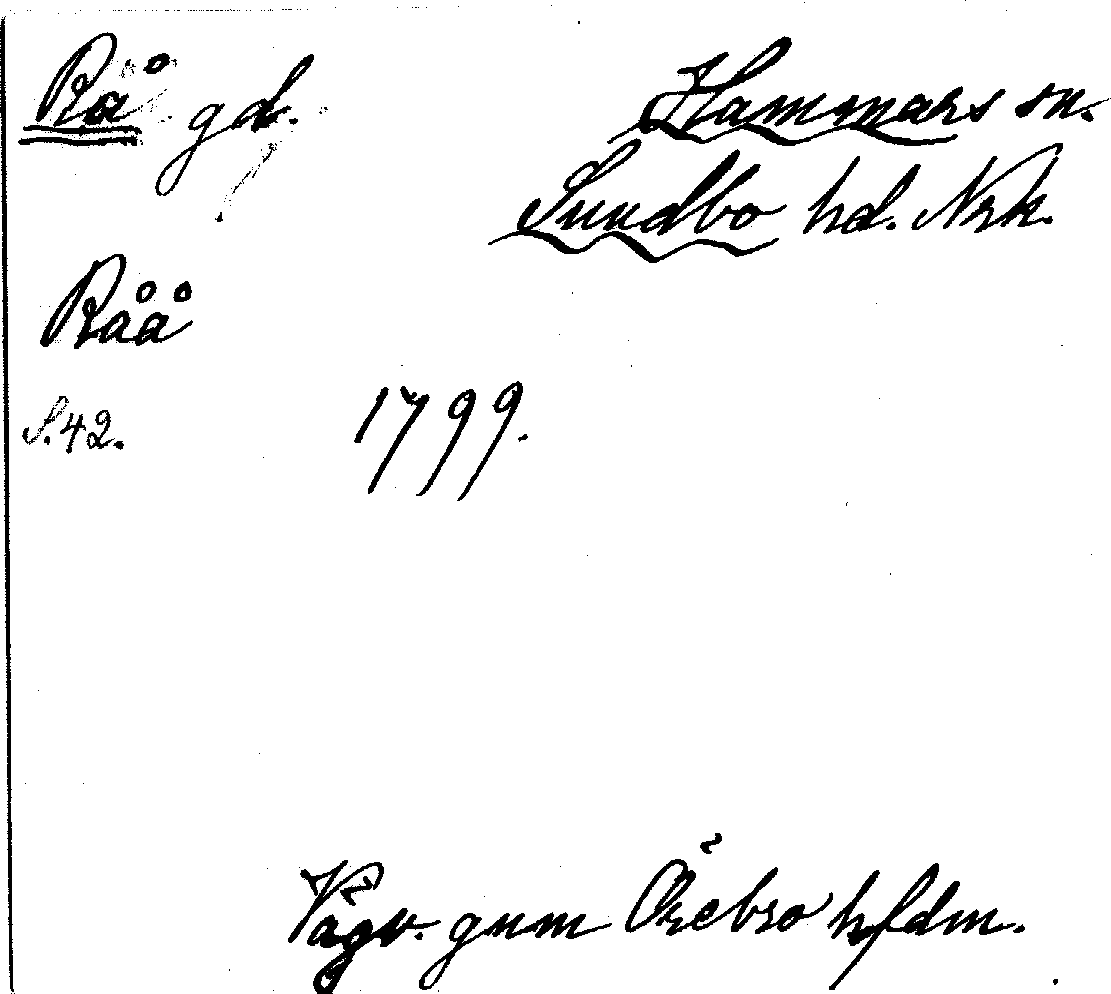 Rå gd.
Hammars sn.
Sundbo hd. Nrk.
Råå
S. 42.
1799.
Vägv. gnm Örebro hfdm.